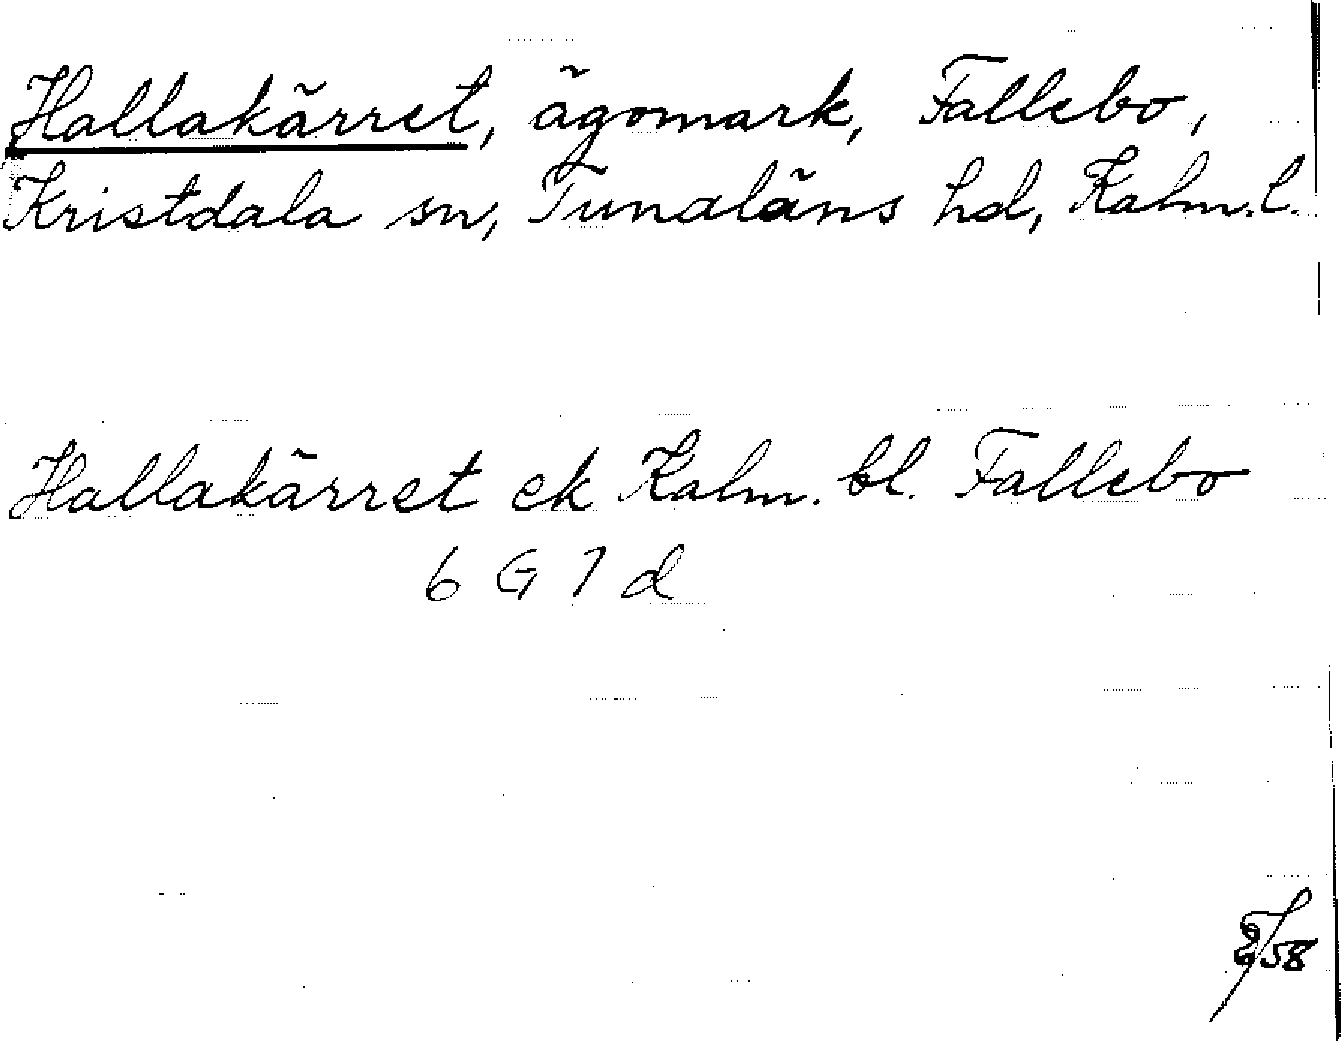 Hallakärret, ägomark, Fallebo,
Kristdala sn, Tunaläns hd, Kalm. l.
Hallakärret ek Kalm. bl. Fallebo
6 G 7 d
/58